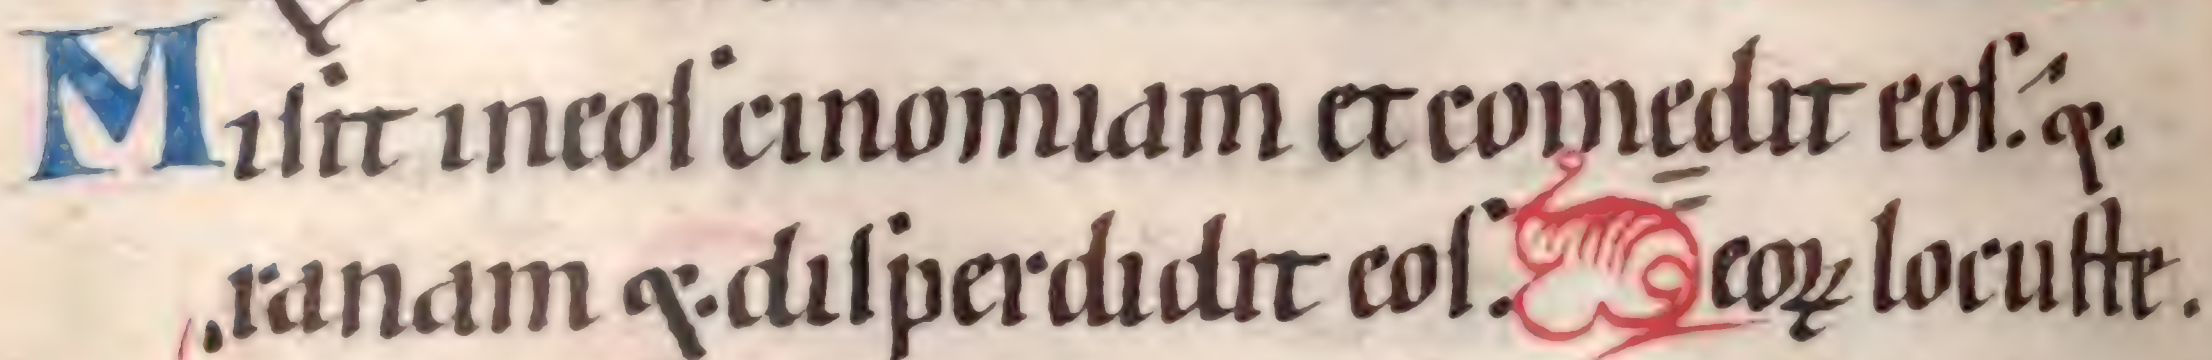 Misit in eos cinomiam et comedit eos. &.
ranam &. disperdidit eos. eoꝝ locuste.